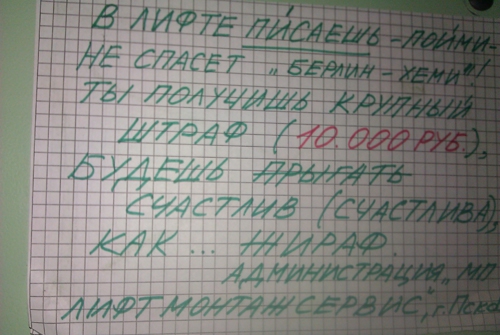 В ЛИФТЕ ПИ́САЕШЬ – ПОЙМИ-
НЕ СПАСЕТ „БЕРЛИН – ХЕМИ"!
ТЫ ПОЛУЧИШЬ КРУПНЫЙ
ШТРАФ (10.000 РУБ.),
БУДЕШЬ ПРЫГАТЬ
СЧАСТЛИВ (СЧАСТЛИВА),
КАК ... ЖИРАФ.
АДМИНИСТРАЦИЯ „МП
ЛИФТМОНТАЖСЕРВИС", г.